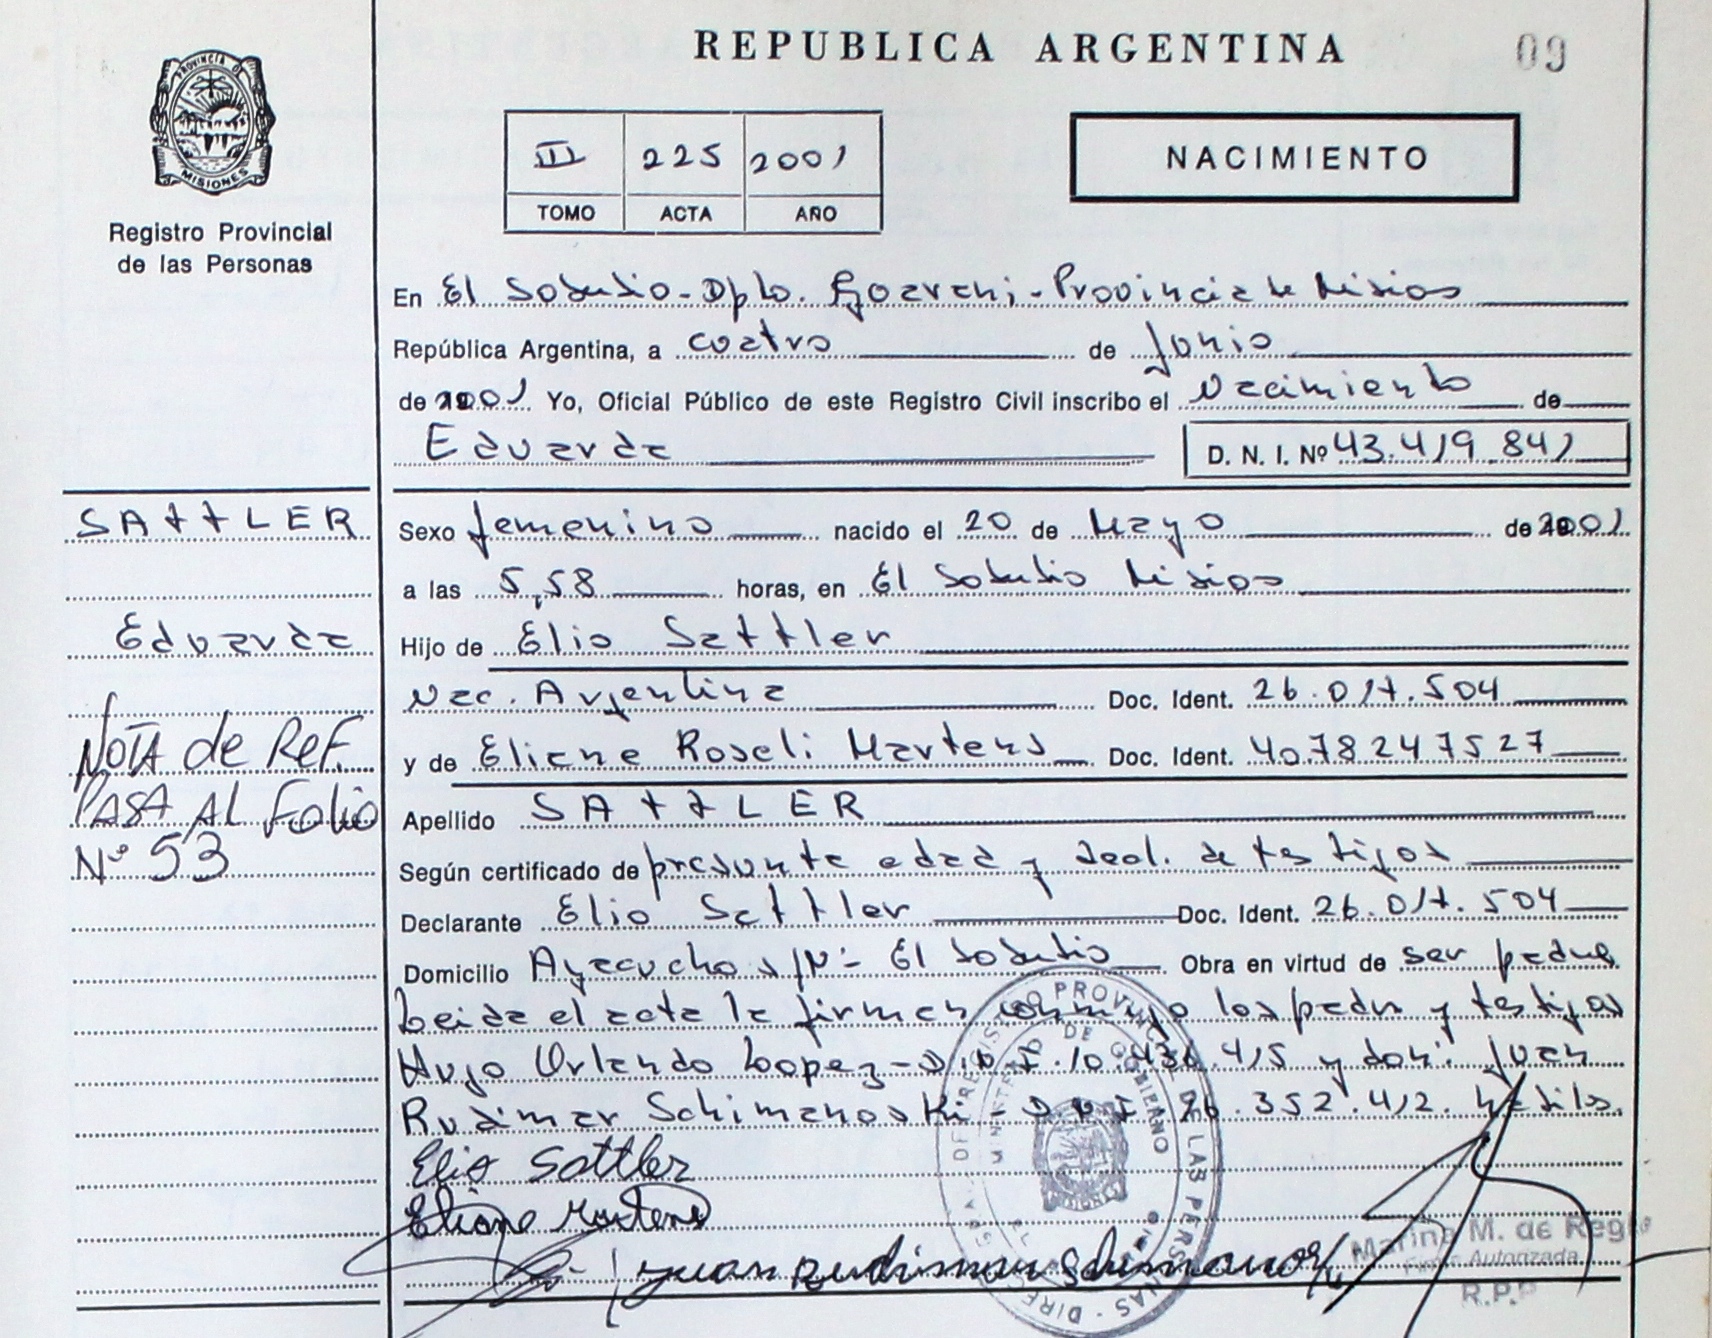 REPUBLICA ARGENTINA
09
PROVINCIA DE
MISIONES
Registro Provincial
de las Personas
III 225 2001
TOMO ACTA AÑO
NACIMIENTO
En El Soberbio - Dpto. Guarani - Provincia de Misiones
República Argentina, a cuatro de Junio
de 2001 Yo, Oficial Público de este Registro Civil inscribo el Nacimiento de
Eduarda D. N. I. Nº 43.419.841
SATTLER
Sexo femenino nacido el 20 de Mayo de 2001
a las 5,58 horas, en El Soberbio Misiones
Eduarda
Hijo de Elio Sattler
Nac. Argentina Doc. Ident. 26.017.504
NOTA de REF.
PASA AL Folio
Nº 53
y de Eliane Roseli Martens Doc. Ident. 4078247527
Apellido SATTLER
Según certificado de presunta edad y decl. de testigos
Declarante Elio Sattler Doc. Ident. 26.017.504
Domicilio Ayacucho s/Nº El Soberbio Obra en virtud de ser padre
Leida el acta la firman conmigo los padres y testigos
Hugo Orlando Lopez - D.N.I. 10.436.415 y don: Juan
Rudimar Schimanoski - D.N.I. 26.352.412.
Elio Sattler
Eliane Martens
Juan Rudimar Schimanoski
Marina M. de Regis
Firma Autorizada
R.P.P